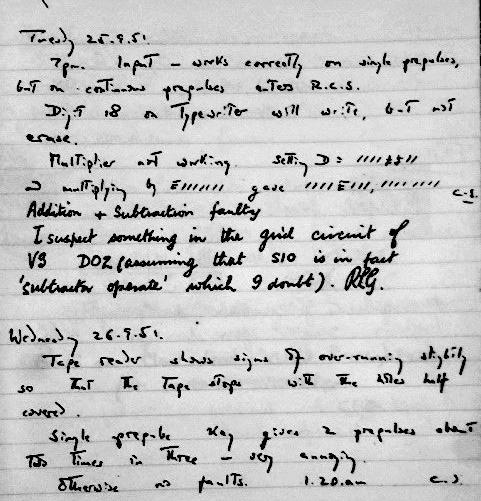 Tuesday 25.9.51.
7pm. Input – works correctly on single prepulses,
but on continuous prepulses enters R.C.S.
Digit 18 on Typewriter will write, but not
erase.
Multiplier not working. Setting D =
& multiplying by E/////// gave ////E///, //////// C.S.
Addition + Subtraction faulty
I suspect something in the grid circuit of
V9 D02 (assuming that S10 is in fact
'subtractor operate' which I doubt). REG.
Wednesday 26.9.51.
Tape reader shows signs of over-running slightly
so that the tape stops with the holes half
covered.
Single prepulse key gives 2 prepulses about
two times in three – very annoying.
Otherwise no faults. 1.20.am C.S.